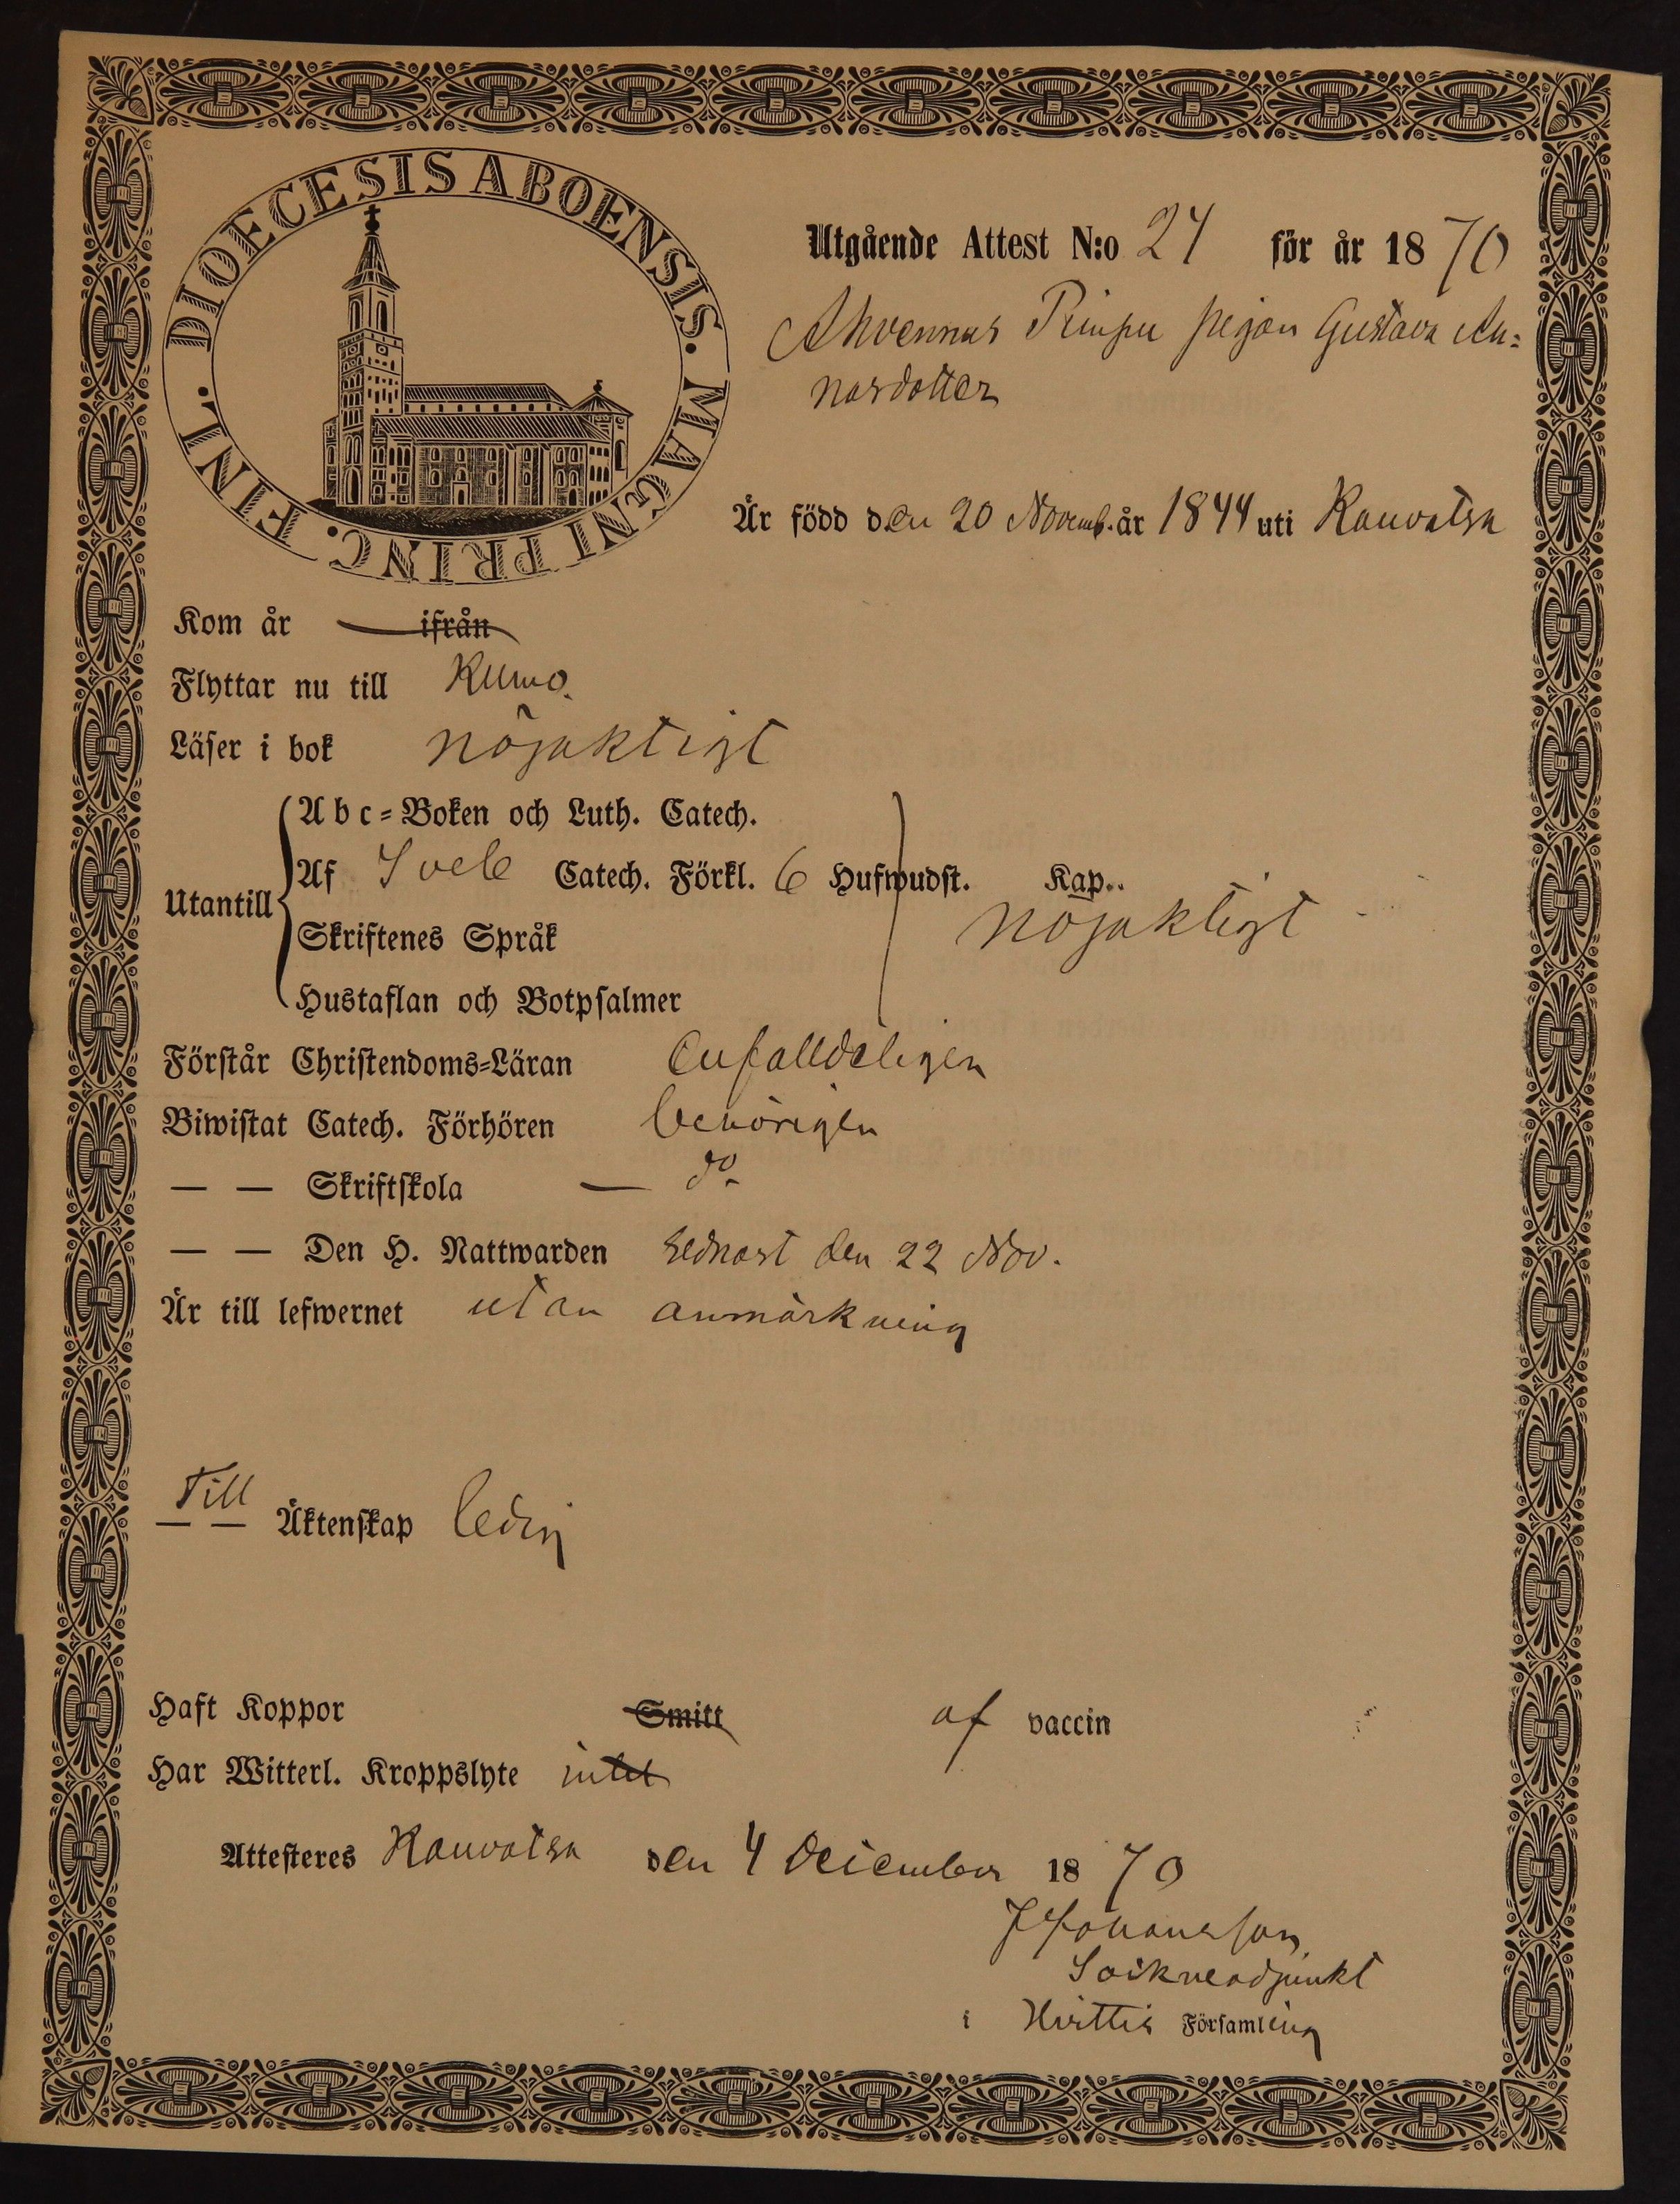 DIOECESIS ABOENSIS. MAGNI PRINC. FINL.
Utgående Attest N:o 24 för år 1870
Ahvennus Pimpu pigan Gustava An=
nasdotter
Är född den 20 Novemb. år 1844 uti Kauvatsa
Kom år ifrån
Flyttar nu till Kumo.
Läser i bok nöjaktigt
Utantill
Abc=Boken och Luth. Catech.
Af Sveb Catech. Förkl. 6 Hufwudst. Kap.
Skriftenes Språk
nöjaktigt
Hustaflan och Botpsalmer
Förstår Christendoms=Läran Enfalldeligen
Biwistat Catech. Förhören behörigen
— — Skriftskola — do
— — Den H. Nattwarden sednast den 22 Nov.
Är till lefwernet utan anmärkning
Till
— — Äktenskap ledig
Haft Koppor Smitt af vaccin
Har Witterl. Kroppslyte intet
Attesteres Kauvatsa den 4 December 1870
J Johansson
Sockneadjunkt
i Hvittis Församling